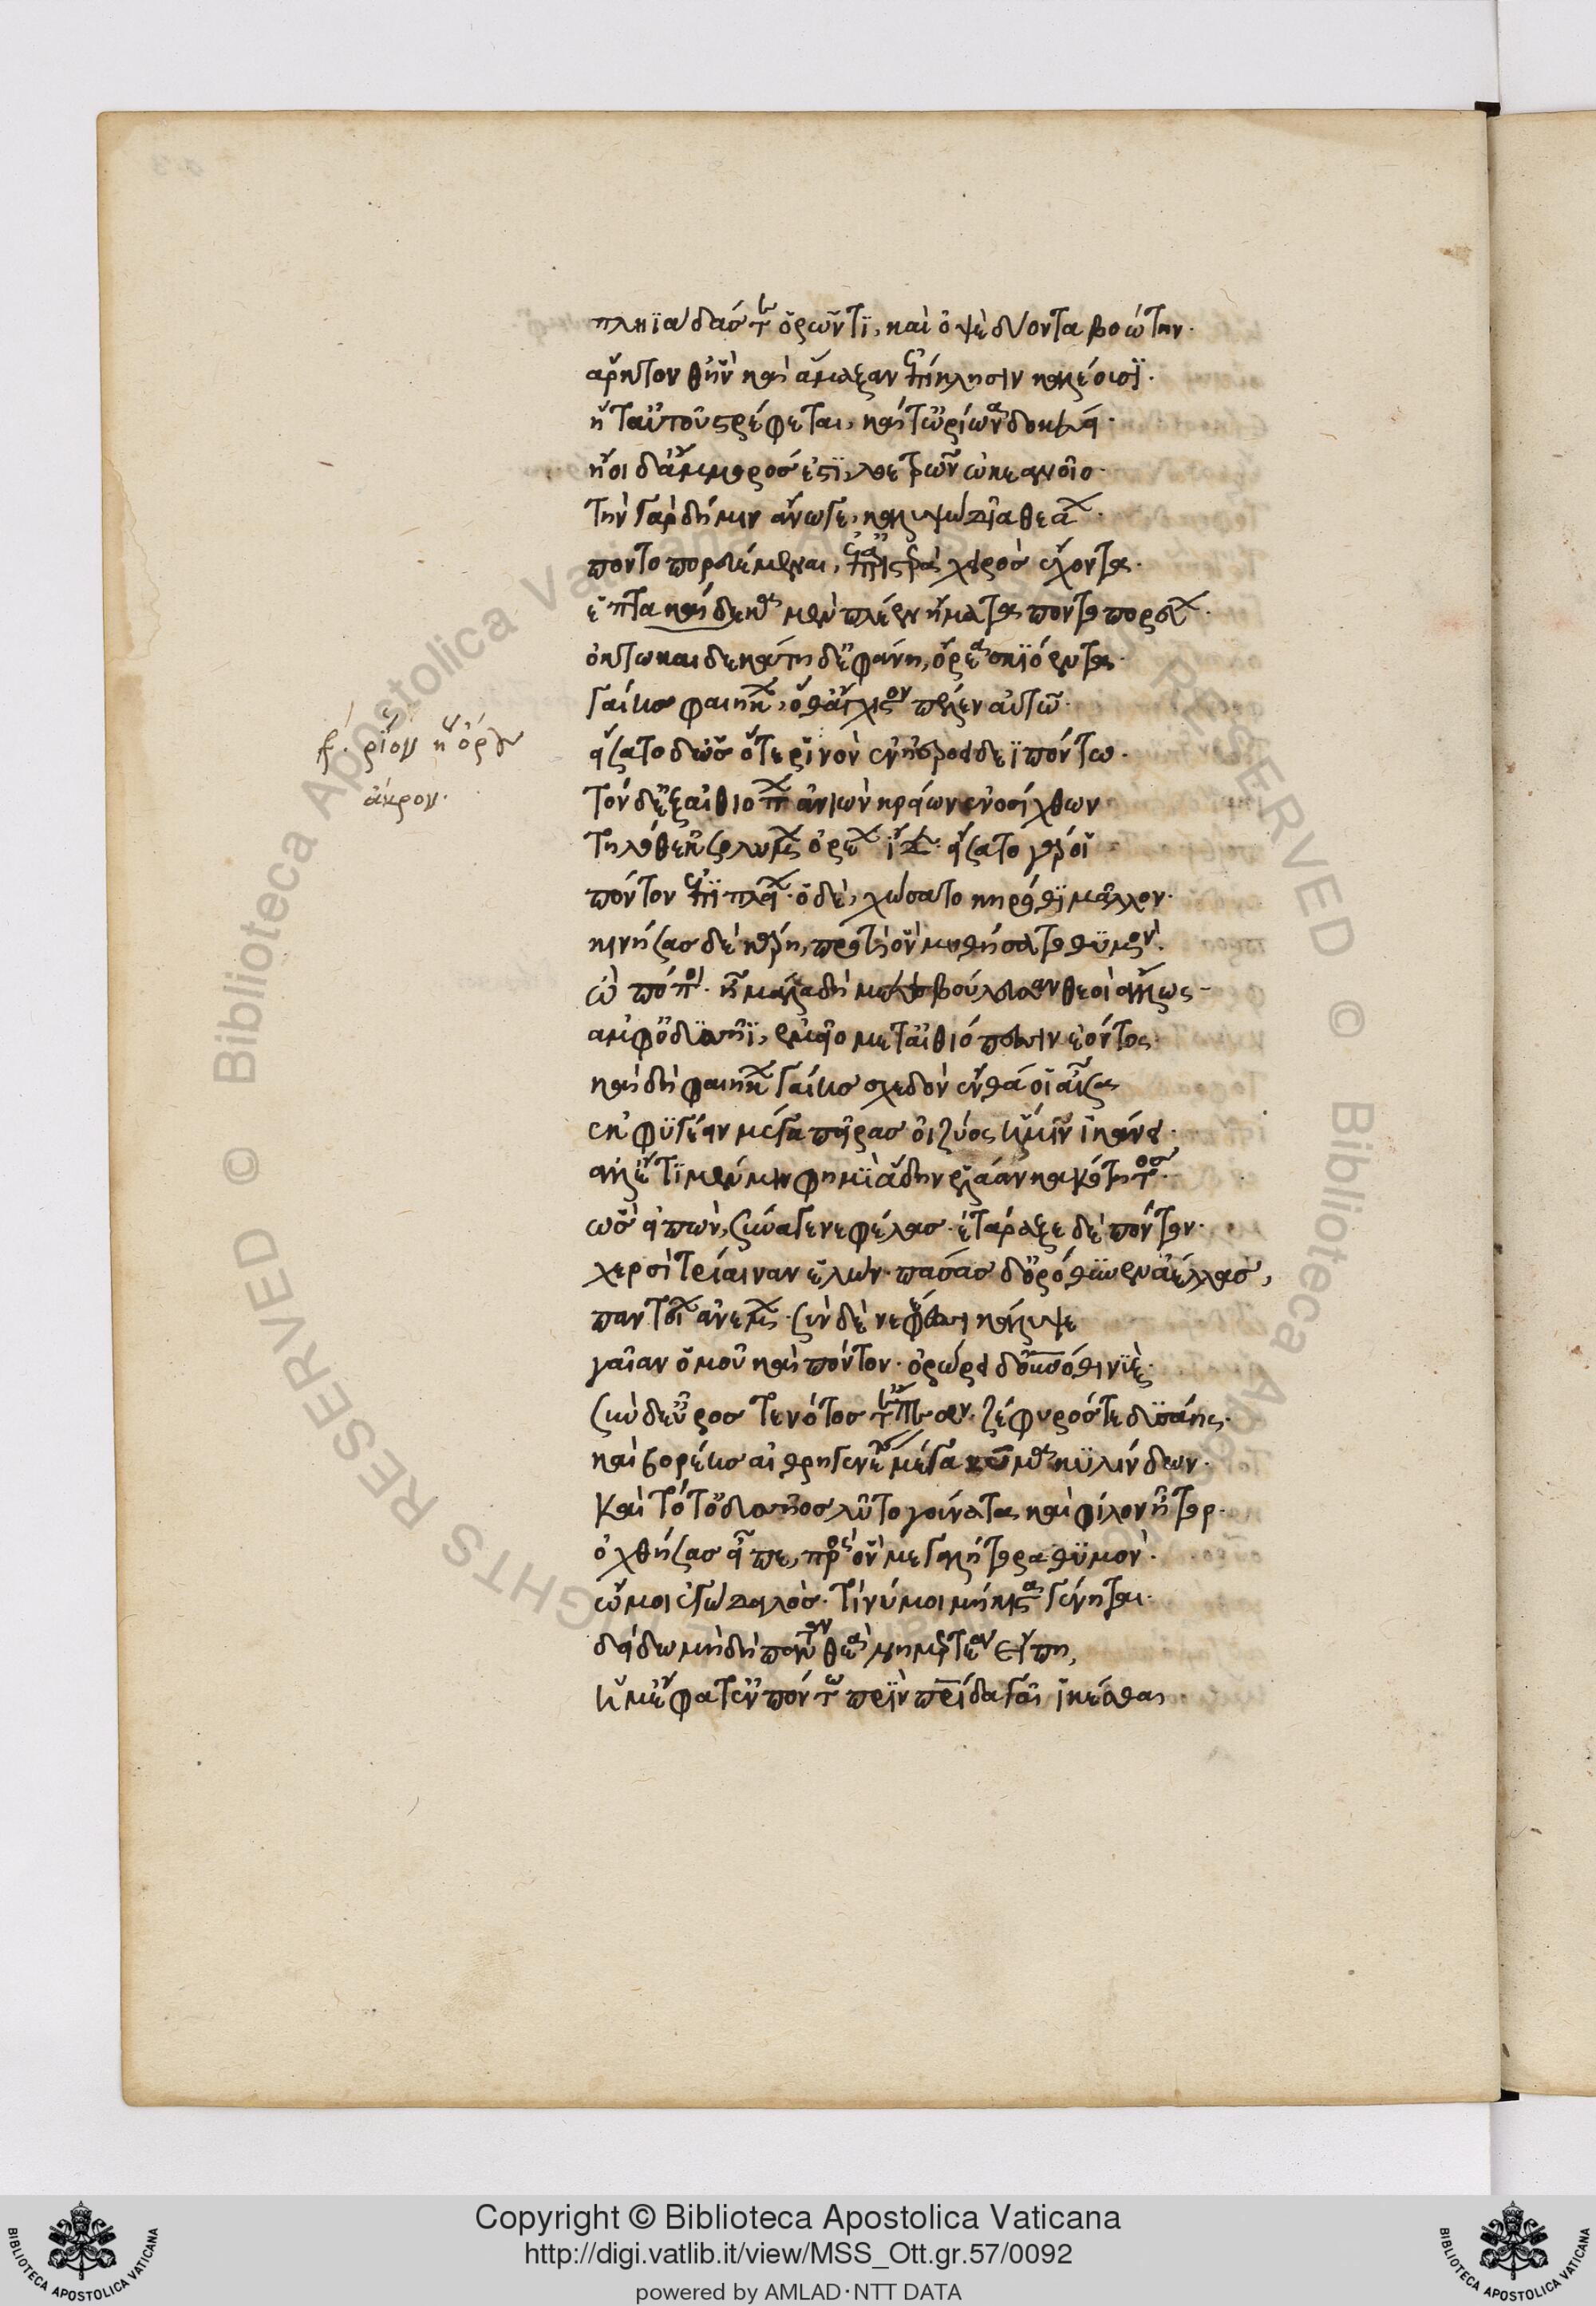 πληϊάδας τ' ὁρῶντϊ, καὶ ὀψὲ δύοντα βοώτην.
ἄρκτον θ' ἣν καὶ ἄμαξαν ἐπίκλησιν καλέουσϊ.
ἥ τ' αὐτοῦ στρέφεται, καί τ' ὠρίωνα δοκεύει.
οἴη δ' ἄμμορός ἐστϊ, λοετρῶν ὠκεανοῖο.
τὴν γὰρ δή μιν ἄνωγε, καλυψὼ δῖα θεάων.
ποντοπορευέμεναι, ἐπ' ἀριστερὰ χειρὸς ἔχοντα.
ἑπτὰ καὶ δέκα μὲν πλέεν ἤματα ποντοπορεύων.
ὀκτωκαιδεκάτη δ' ἐφάνη, ὄρεα σκϊόεντα.
γαίης φαιήκων, ὅθι ἄγχιστον πέλεν αὐτῶ.
εἴσατο δ' ὡς ὅτε ῥινὸν ἐν ἠεροειδέϊ πόντω.
τὸν δ' ἐξ αἰθιόπων ἀνιὼν κρείων ἐνοσίχθων
τηλόθεν ἐκ σολύμων ὀρέων ἴδεν. εἴσατο γάρ οἱ
πόντον ἐπϊπλείων. ὁ δὲ, χώσατο κηρόθϊ μᾶλλον.
κινήσας δὲ κάρη, προτὶ ὃν μυθήσατο θϋμόν.
ὢ πόποι. ἦ μάλα δὴ μετεβούλευσαν θεοὶ ἄλλως
ἀμφ' ὀδυσῆϊ, ἐμεῖο μετ' αἰθιόπεσσιν ἐόντος.
καὶ δὴ φαιήκων γαίης σχεδὸν ἔνθά οἱ αἶσα
ἐκφϋγέειν μέγα πεῖραρ ὀϊζύος ἥ μιν ἱκάνει.
ἀλλ' ἔτϊ μέν μιν φημϊ ἄδην ἐλάαν κακότητος.
ὣς εἰπὼν, σύναγε νεφέλας. ἐτάραξε δὲ πόντον.
χερσὶ τρίαιναν ἑλών. πάσας δ' ὀρόθϋνεν ἀέλλας,
παντοίων ἀνέμων. σὺν δὲ νεφέεσσι κάλυψε
γαῖαν ὁμοῦ καὶ πόντον. ὀρώρει δ' οὐρανόθεν νύξ.
σὺν δ' εὖρος τε νότος τ' ἔπεσον. ζέφυρός τε δυσαής.
καὶ βορέης αἰθρηγενέτης μέγα κῦμα κϋλίνδων.
καὶ τότ' ὀδυσῆος λῦτο γούνατα καὶ φίλον ἦτορ.
ὀχθήσας δ' ἄρα εἶπε, πρὸς ὃν μεγαλήτορα θϋμόν.
ὤμοι ἐγὼ δειλὸς. τί νύ μοι μήκιστα γένηται.
δείδω μὴ δὴ πάντα θεὰ νημερτέα εἶπη,
ἥ μ' ἔφατ' ἐν πόντω πρὶν πατρίδα γαῖαν ἱκέσθαι.
ῥῖον ἢ ὄρους
ἄκρον.
Copyright © Biblioteca Apostolica Vaticana
http://digi.vatlib.it/view/MSS_Ott.gr.57/0092
powered by AMLAD·NTT DATA